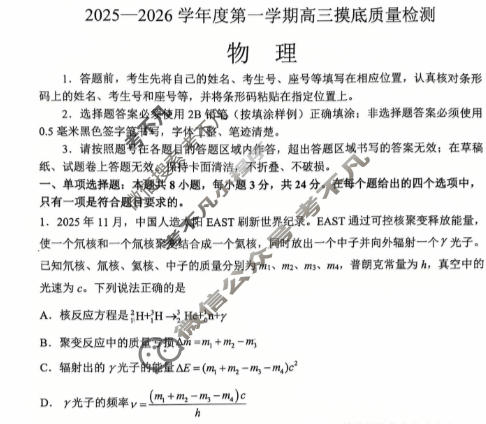 2025—2026 学年度第一学期高三摸底质量检测
物 理
1．答题前，考生先将自己的姓名、考生号、座号等填写在相应位置，认真核对条形
码上的姓名、考生号和座号等，并将条形码粘贴在指定位置上。
2．选择题答案必须使用 2B 铅笔（按填涂样例）正确填涂；非选择题答案必须使用
0.5 毫米黑色签字笔书写，字体工整、笔迹清楚。
3．请按照题号在各题目的答题区域内作答，超出答题区域书写的答案无效；在草稿
纸、试题卷上答题无效。保持卡面清洁，不折叠、不破损。
一、单项选择题：本题共 8 小题，每小题 3 分，共 24 分。在每个题给出的四个选项中，
只有一项是符合题目要求的。
1．2025 年 11 月，中国人造太阳 EAST 刷新世界纪录。EAST 通过可控核聚变释放能量，
使一个氘核和一个氚核聚变结合成一个氦核，同时放出一个中子并向外辐射一个 γ 光子。
已知氘核、氚核、氦核、中子的质量分别为 m₁、m₂、m₃、m₄，普朗克常量为 h，真空中的
光速为 c。下列说法正确的是
A．核反应方程是 ²₁H+³₁H→ He+ n+γ
B．聚变反应中的质量亏损 Δm=m₁+m₂−m₃
C．辐射出的 γ 光子的能量 ΔE=(m₁+m₂−m₃−m₄)c²
D．γ 光子的频率 ν=(m₁+m₂−m₃−m₄)c/h
微信公众号:考不凡